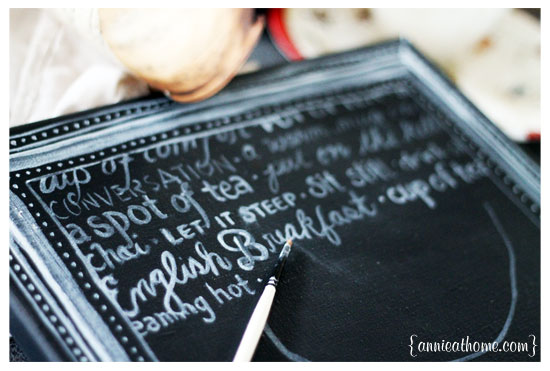 cup of com
CONVERSATION · a warm
a spot of tea · just on the
Chai · LET IT STEEP · SIP, SIP,
English Breakfast · cup of tea
eaming hot ·
{annieathome.com}